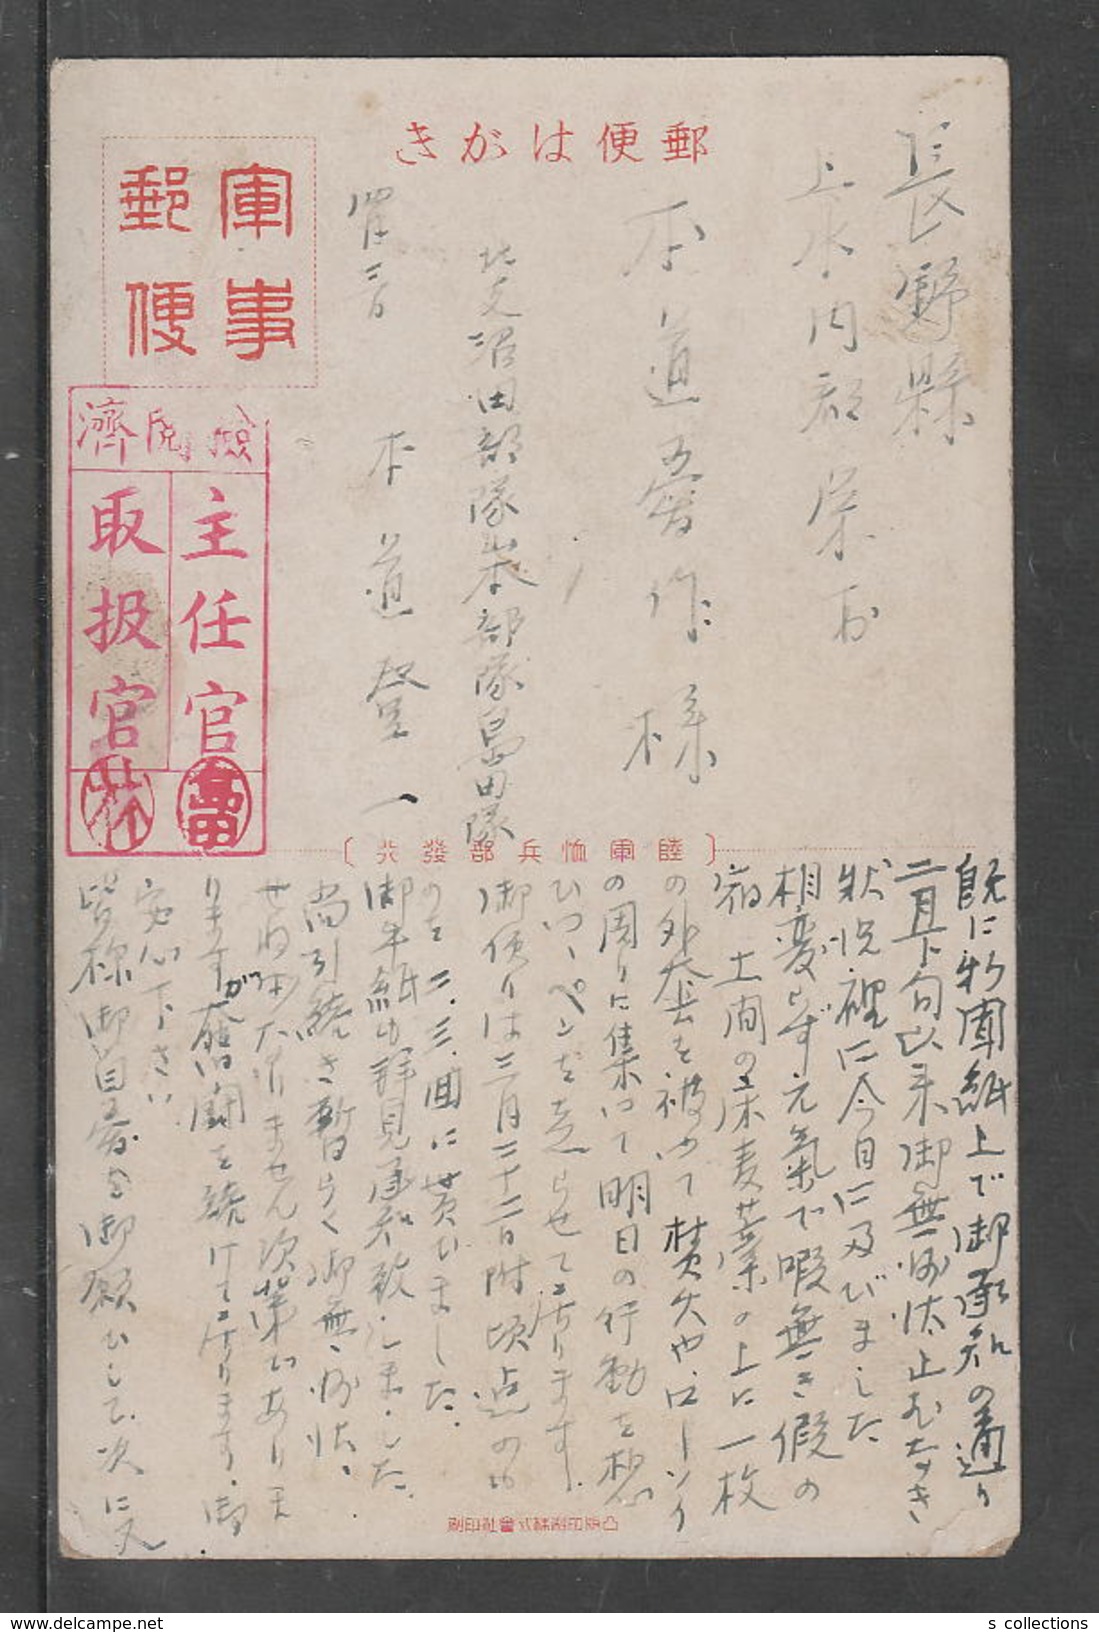 郵便はがき
軍事
郵便
検閲済
主任官
取扱官
長野縣
上水内郡栄村
本道五等作様
北支沼田部隊本部隊島田隊
本道登一
陸軍恤兵部發行
既に新聞紙上で御承知の通り
二月下旬以来御無沙汰止むなき
状况裡に今日に及びました
相変らず元氣で暇無き假の
宿土間の床麦藁の上に一枚
の外套を被って焚火やローソク
の周りに集って明日の行動を想
ひつゝペンを走らせて居ります
御便りは三月二十二日附頃迄のも
のを二、三回に貰ひました.
御手紙も拝見承知致しました.
尚引続き暫らく御無沙汰、
せねばなりません次第でありま
りますが奮闘を続けて居ります.御
安心下さい
皆様御自愛を御願ひして次に又
凸版印刷株式會社印刷
s collections
www.delcampe.net